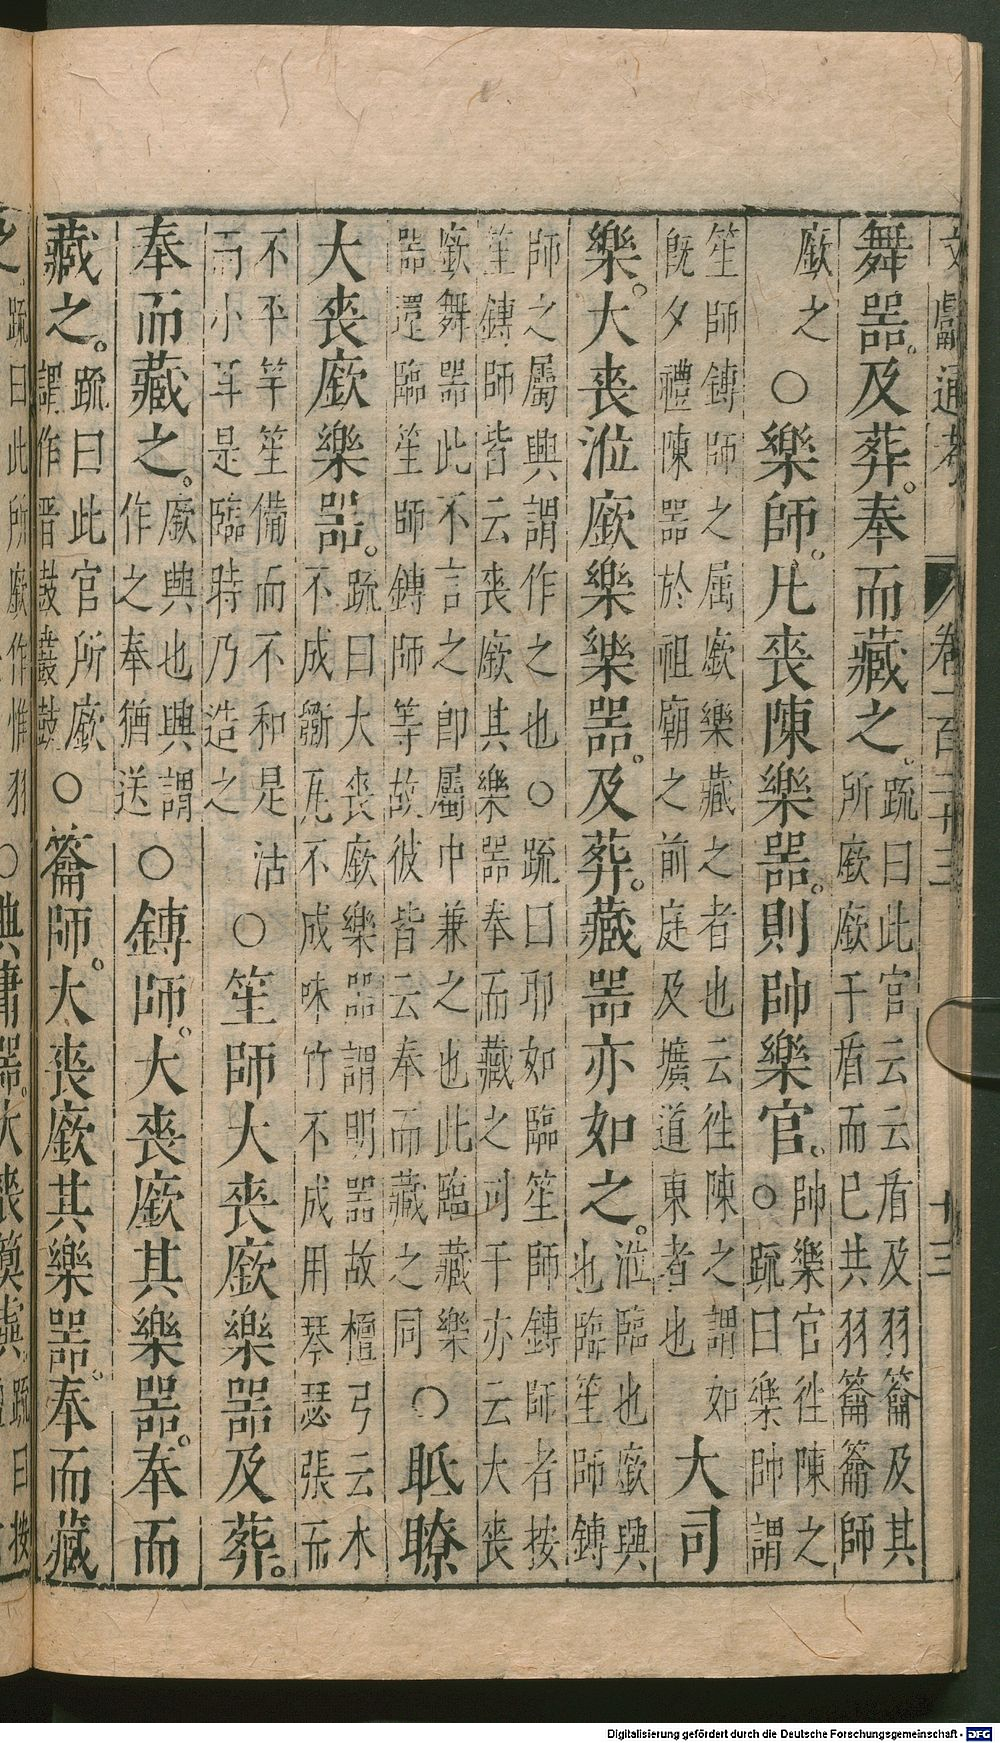 文獻通考 卷一百二十三 十三
舞器。及葬。奉而藏之。疏曰此官云云盾及羽籥及其
所廞廞干盾而已共羽籥籥師
廞之 ○樂師。凡喪陳樂器。則帥樂官。帥樂官徃陳之
○疏曰樂帥謂
笙師鏄師之属廞樂藏之者也云徃陳之謂如
既夕禮陳器於祖廟之前庭及壙道東者也 大司
樂。大喪涖廞樂樂器。及葬。藏器亦如之。涖臨也廞興
也臨笙師鏄
師之屬興謂作之也○疏曰耶如臨笙師鏄師者按
笙鏄師皆云喪廞其樂器奉而藏之司干亦云大喪
廞舞器此不言之即屬中兼之也此臨藏樂
器還臨笙師鏄師等故彼皆云奉而藏之同 ○眂瞭
大喪廞樂器。疏曰大喪廞樂器謂明器故檀弓云木
不成斵瓦不成味竹不成用琴瑟張而
不平竽笙備而不和是沽
而小耳是臨時乃造之 ○笙師大喪廞樂器及葬。
奉而藏之。廞興也興謂
作之奉猶送 ○鏄師。大喪廞其樂器。奉而
藏之。疏曰此官所廞
謂作晋鼓鼖鼓 ○籥師。大喪廞其樂器。奉而藏
之。疏曰此所廞作惟羽 ○典庸器。大喪 疏曰按
Digitalisierung gefördert durch die Deutsche Forschungsgemeinschaft - DFG